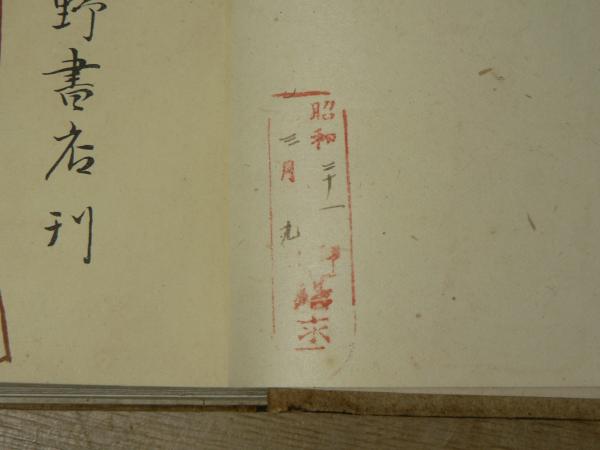 昭和三十一年
三月九
野書店刊